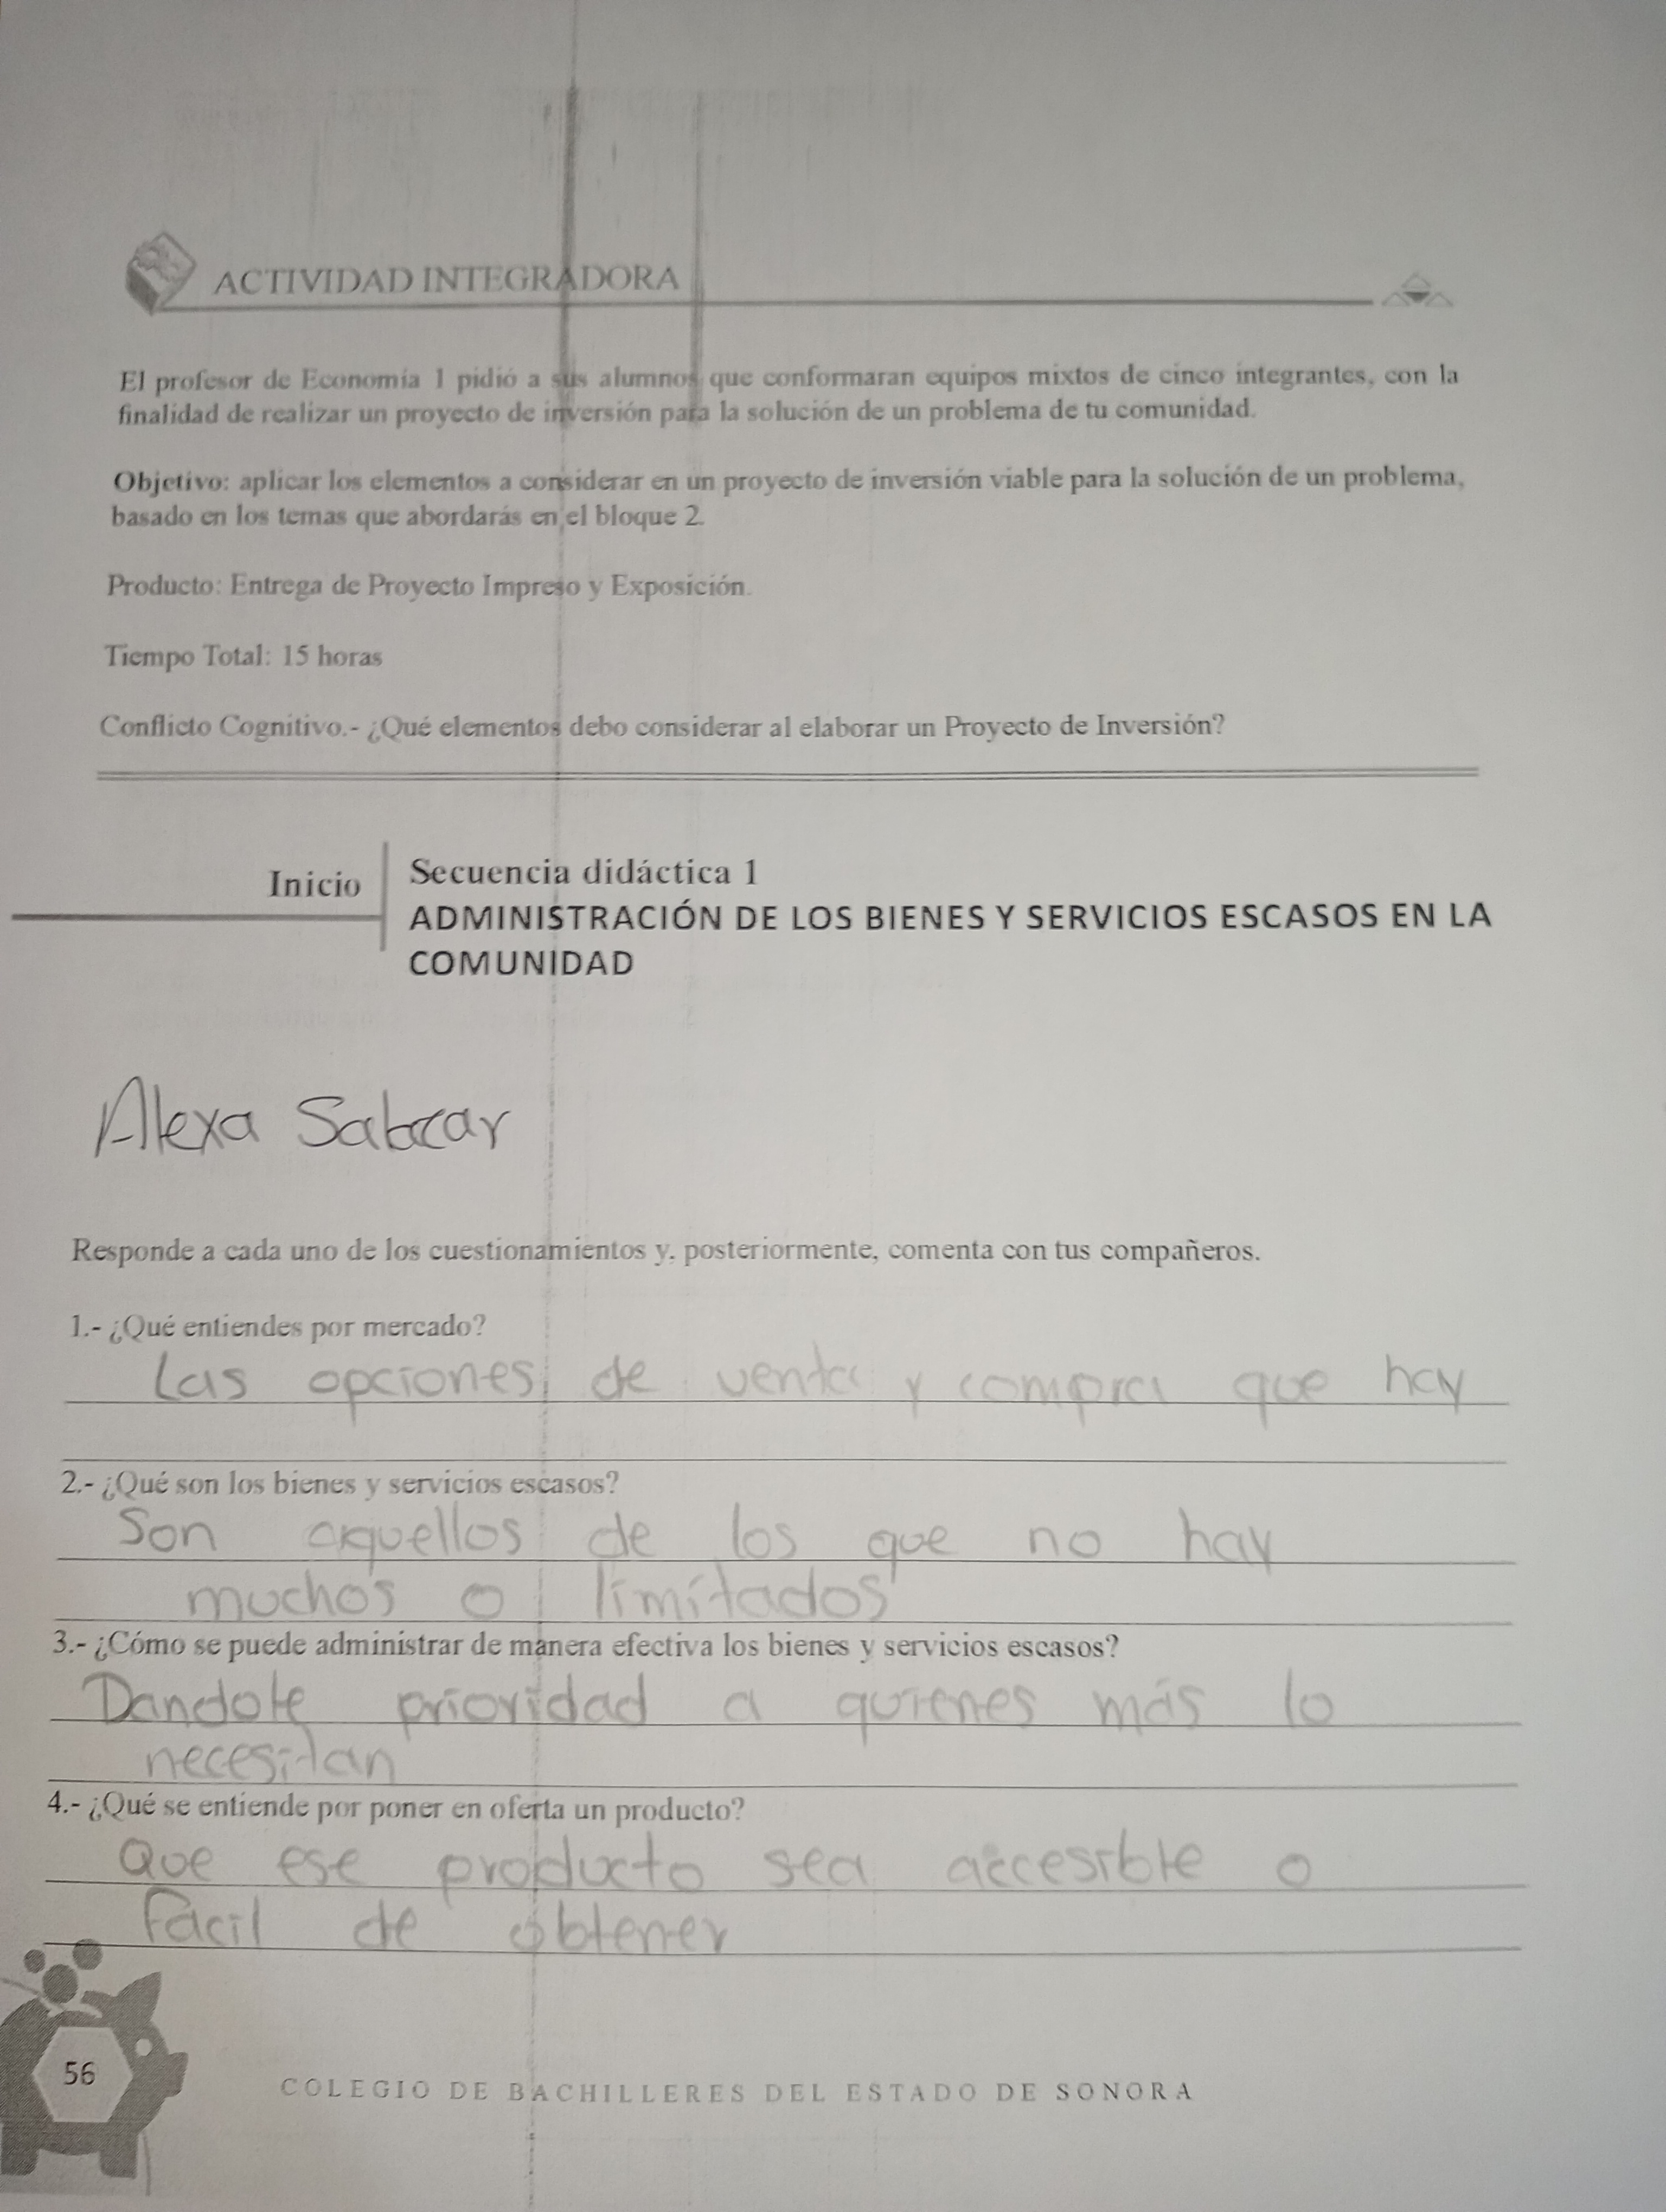 ACTIVIDAD INTEGRADORA
El profesor de Economía 1 pidió a sus alumnos que conformaran equipos mixtos de cinco integrantes, con la
finalidad de realizar un proyecto de inversión para la solución de un problema de tu comunidad.
Objetivo: aplicar los elementos a considerar en un proyecto de inversión viable para la solución de un problema,
basado en los temas que abordarás en el bloque 2.
Producto: Entrega de Proyecto Impreso y Exposición.
Tiempo Total: 15 horas
Conflicto Cognitivo.- ¿Qué elementos debo considerar al elaborar un Proyecto de Inversión?
Inicio
Secuencia didáctica 1
ADMINISTRACIÓN DE LOS BIENES Y SERVICIOS ESCASOS EN LA
COMUNIDAD
Alexa
Responde a cada uno de los cuestionamientos y, posteriormente, comenta con tus compañeros.
1.- ¿Qué entiendes por mercado?
Las opciones de venta y compra que hay
2.- ¿Qué son los bienes y servicios escasos?
Son aquellos de los que no hay
muchos o limitados
3.- ¿Cómo se puede administrar de manera efectiva los bienes y servicios escasos?
Dandole prioridad a quienes más lo
necesitan
4.- ¿Qué se entiende por poner en oferta un producto?
Que ese producto sea accesible o
facil de obtener
56
COLEGIO DE BACHILLERES DEL ESTADO DE SONORA